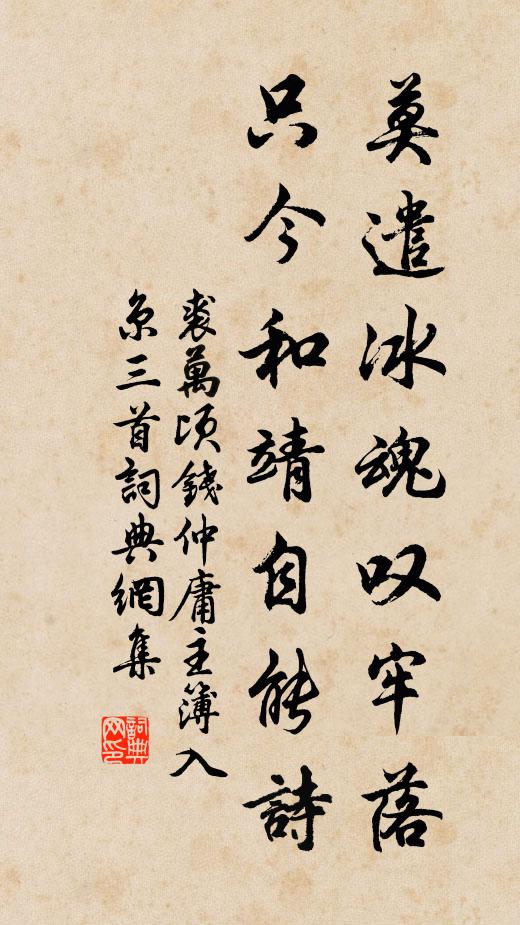 莫遣冰魂叹牢落
只今和靖自能詩
裘萬頃錢仲庸主簿入
京三首詞典網集
詞典
网印